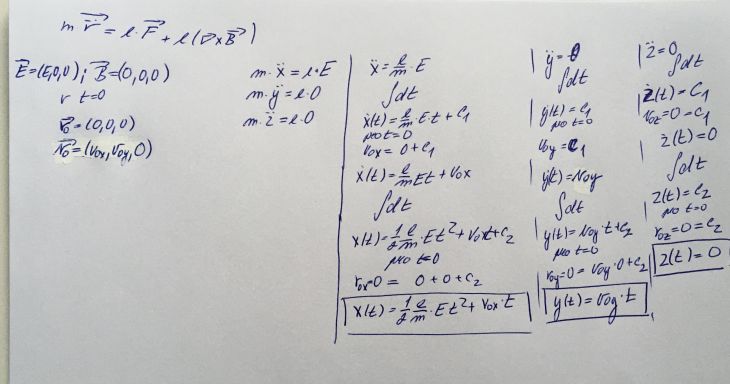 m·r̈⃗ = e·F⃗ + e(v⃗×B⃗)
E⃗=(E,0,0); B⃗=(0,0,0)
v t=0
r⃗₀=(0,0,0)
v⃗₀=(v₀ₓ,v₀y,0)
m·ẍ = e·E
m·ÿ = e·0
m·z̈ = e·0
ẍ = e/m · E
∫dt
ẋ(t) = e/m · E·t + c₁
pro t=0
v₀ₓ = 0 + c₁
ẋ(t) = e/m Et + v₀ₓ
∫dt
x(t) = 1/2 e/m · Et² + v₀ₓt + c₂
pro t=0
r₀ₓ=0 = 0+0+c₂
x(t) = 1/2 e/m · Et² + v₀ₓ·t
ÿ = 0
∫dt
ẏ(t) = c₁
pro t=0
v₀y = c₁
ẏ(t) = v₀y
∫dt
y(t) = v₀y·t + c₂
pro t=0
r₀y=0 = v₀y·0 + c₂
y(t) = v₀y·t
z̈ = 0
∫dt
ż(t) = c₁
v₀z=0=c₁
ż(t) = 0
∫dt
z(t) = c₂
pro t=0
r₀z=0=c₂
z(t) = 0